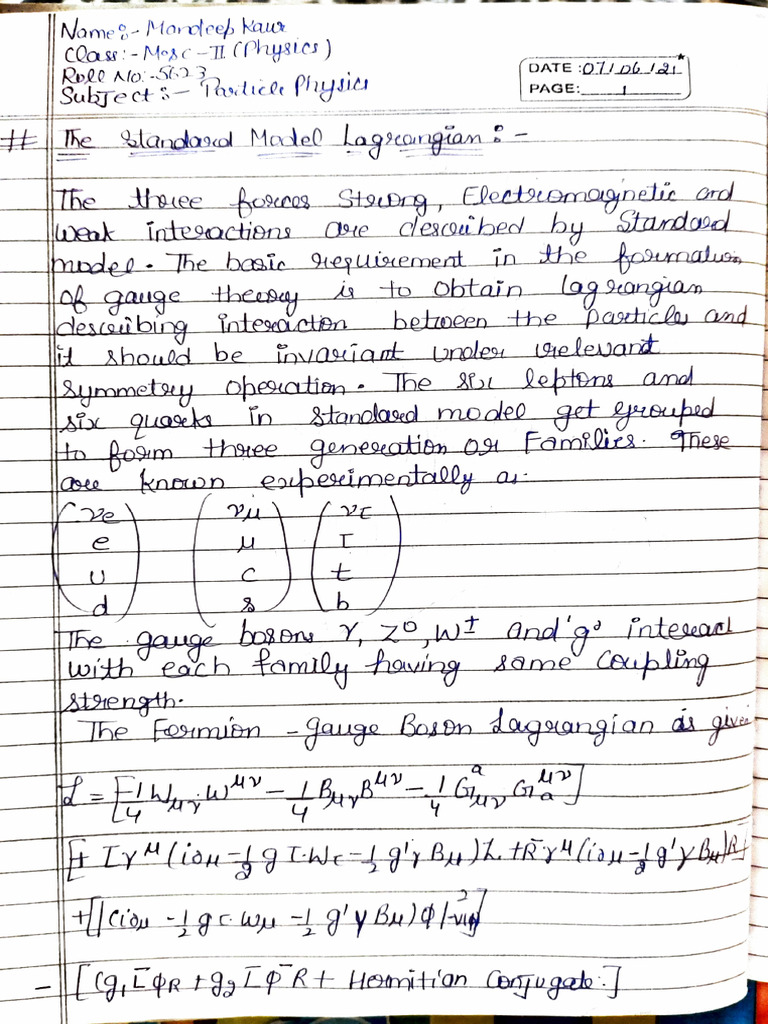 Name:- Mandeep Kaur
Class:- M.sc-II (Physics)
Roll No:-5623
Subject:- Particle Physics
DATE :07/06/21
PAGE: 1
# The Standard Model Lagrangian :-
The three forces Strong, Electromagnetic and
weak interactions are described by Standard
model. The basic requirement in the formation
of gauge theory is to obtain lagrangian
describing interacton between the particles and
it should be invariant under relevant
symmetry operation. The six leptons and
six quarks in standard model get grouped
to form three generation or Families. These
are known experimentally as-
νe νμ ντ
e μ τ
u c t
d s b
The gauge bosons γ, Z⁰, W± and 'g' interact
with each family having same coupling
strength.
The Fermion - gauge Boson Lagrangian is given
L = [-1/4 Wμν·W^μν - 1/4 Bμν B^μν - 1/4 G^a_μν G_a^μν]
[+ L̄γ^μ (i∂μ - 1/2 g τ·Wμ - 1/2 g'γ Bμ) L + R̄ γ^μ (i∂μ - 1/2 g'γ Bμ) R]
+ [|(i∂μ - 1/2 g τ·Wμ - 1/2 g'γ Bμ) φ|² - V(φ)]
- [(g₁ L̄ φR + g₂ L̄ φ̄ R + Hermitian Conjugate.]